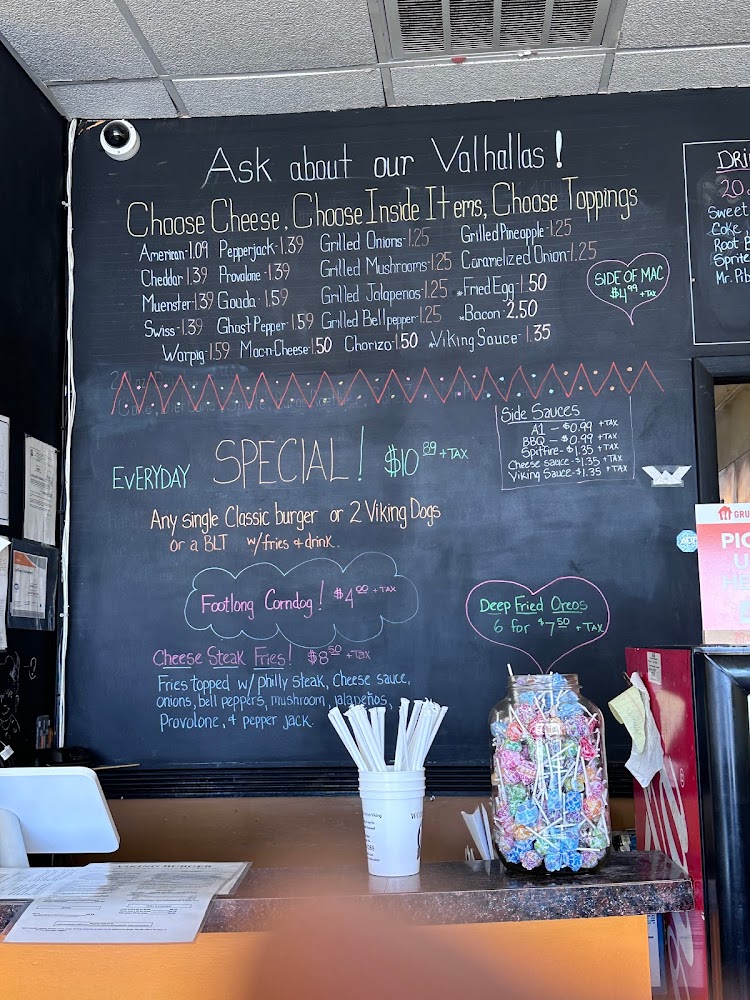 Ask about our Valhallas!
Choose Cheese, Choose Inside Items, Choose Toppings
American-1.09 Pepperjack-1.39 Grilled Onions-1.25 Grilled Pineapple-1.25
Cheddar 1.39 Provolone-1.39 Grilled Mushrooms-1.25 Caramelized Onion-1.25
Muenster-1.39 Gouda-1.59 Grilled Jalapenos-1.25 *Fried Egg-1.50
Swiss-1.39 Ghost Pepper-1.59 Grilled Bell pepper-1.25 *Bacon-2.50
Warpig-1.59 Mac-n-Cheese-1.50 Chorizo-1.50 *Viking Sauce-1.35
SIDE OF MAC
$4.99 +TAX
DRI
20
Sweet
Coke
Root B
Sprite
Mr. Pib
Side Sauces
A1 - $0.99 +TAX
BBQ - $0.99 +TAX
SpitFire - $1.35 +TAX
Cheese sauce - $1.35 +TAX
Viking Sauce - $1.35 +TAX
EVERYDAY SPECIAL! $10.89 +TAX
Any single Classic burger or 2 Viking Dogs
or a BLT w/fries + drink.
Footlong Corndog! $4.00 +TAX
Deep Fried Oreos
6 for $7.50 +TAX
Cheese Steak Fries! $8.50 +TAX
Fries topped w/ philly steak, cheese sauce,
onions, bell peppers, mushroom, jalapeños,
Provolone, + pepper jack.
GRU
PIC
U
HE
VIKING BURGER